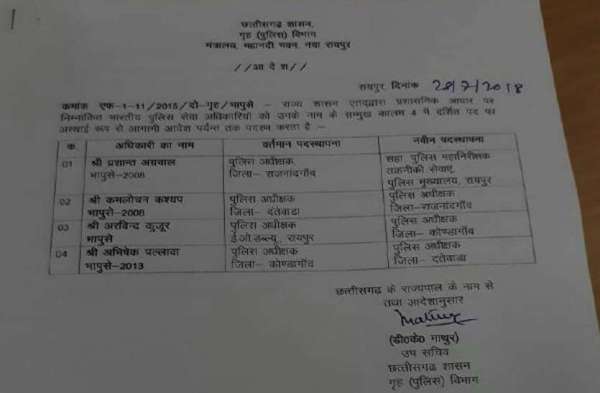 छत्तीसगढ़ शासन,
गृह (पुलिस) विभाग
मंत्रालय, महानदी भवन, नया रायपुर
//आदेश//
रायपुर, दिनांक 20/7/2018
कमांक एफ-1-11/2015/दो-गृह/भापुसे – राज्य शासन एतद्द्वारा प्रशासनिक आधार पर
निम्नांकित भारतीय पुलिस सेवा अधिकारियों को उनके नाम के सम्मुख कालम 4 में दर्शित पद पर
अस्थाई रूप से आगामी आदेश पर्यन्त तक पदस्थ करता है :–
क. अधिकारी का नाम वर्तमान पदस्थापना नवीन पदस्थापना
01 श्री प्रशान्त अग्रवाल पुलिस अधीक्षक सहा पुलिस महानिरीक्षक
भापुसे-2008 जिला- राजनांदगॉव तकनीकी सेवाएं,
पुलिस मुख्यालय, रायपुर
02 श्री कमलोचन कश्यप पुलिस अधीक्षक पुलिस अधीक्षक
भापुसे-2008 जिला- दंतेवाडा जिला-राजनांदगॉव
03 श्री अरविन्द कुजूर पुलिस अधीक्षक पुलिस अधीक्षक
भापुसे ई.ओ.डब्ल्यू., रायपुर जिला- कोण्डागॉव
04 श्री अभिषेक पल्लावा पुलिस अधीक्षक पुलिस अधीक्षक
भापुसे-2013 जिला- कोण्डागॉव जिला- दंतेवाडा
छत्तीसगढ़ के राज्यपाल के नाम से
तथा आदेशानुसार
(डी0के0 माथुर)
उप सचिव
छत्तीसगढ़ शासन
गृह (पुलिस) विभाग